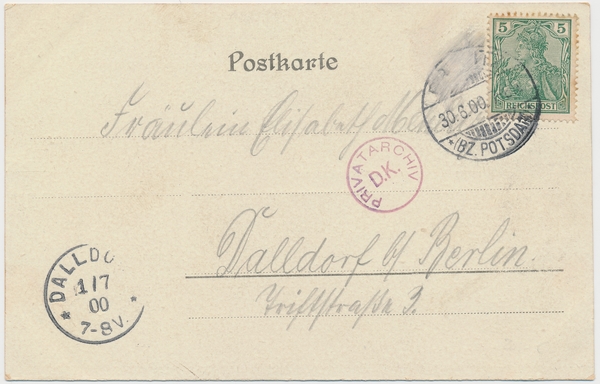 Postkarte
5
REICHSPOST
30.6.00.
*(BZ. POTSDAM)
Fräulein Elisabeth
PRIVATARCHIV
D.K.
Dalldorf b/ Berlin.
Triftstraße 3.
DALLDO
1/7
00
7-8V.